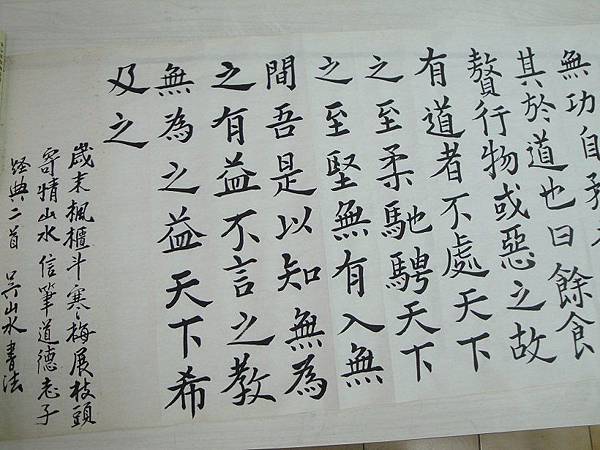 無功自矜
其於道也曰餘食
贅行物或惡之故
有道者不處天下
之至柔馳騁天下
之至堅無有入無
間吾是以知無為
之有益不言之教
無為之益天下希
及之
歲末楓櫃斗寒梅展枝頭
寄情山水信筆道德老子
經典二首 吳山水書法